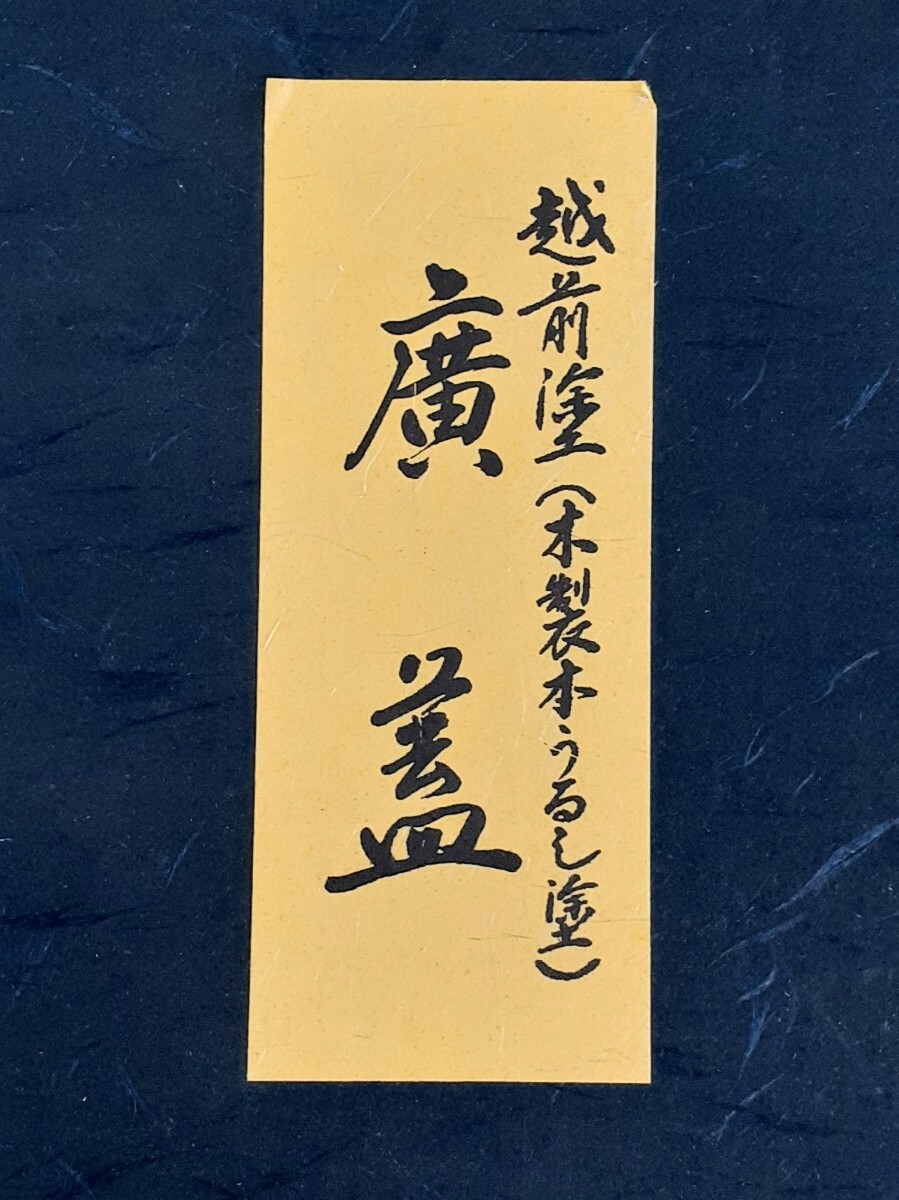 越前塗（木製本うるし塗）
廣蓋